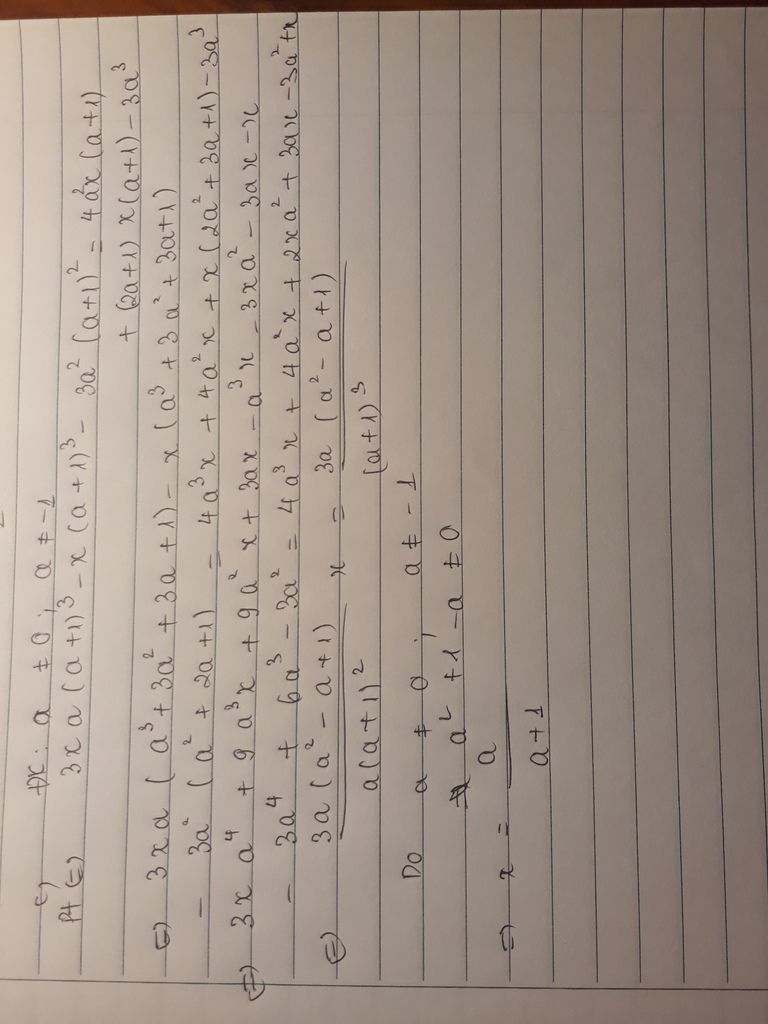 c)
ĐK: a ≠ 0; a ≠ -1
Pt (=) 3xa(a+1)³ - x(a+1)³ - 3a²(a+1)² = 4a²x(a+1)
+ (2a+1)x(a+1) - 3a³
(=) 3xa(a³+3a²+3a+1) - x(a³+3a²+3a+1)
- 3a²(a²+2a+1) = 4a³x + 4a²x + x(2a²+3a+1) - 3a³
(=) 3xa⁴ + 9a³x + 9a²x + 3ax - a³x - 3xa² - 3ax - x
- 3a⁴ + 6a³ - 3a² = 4a³x + 4a²x + 2xa² + 3ax - 3a² + x
(=) 3a(a² - a + 1) / a(a+1)² x = 3a(a² - a + 1) / (a+1)³
Do a ≠ 0; a ≠ -1
a² + 1 - a ≠ 0
=) x = a / a+1